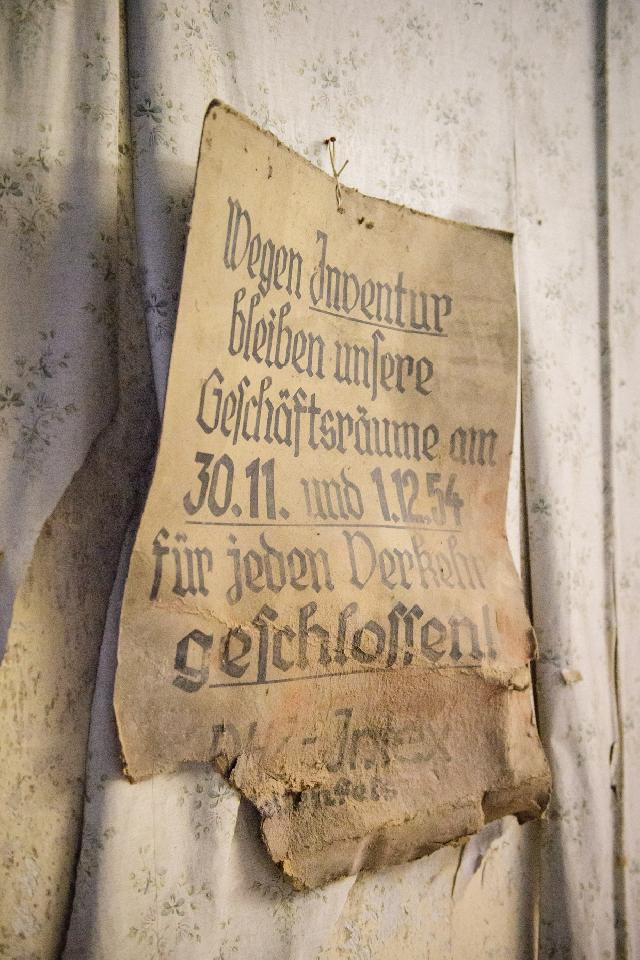 Wegen Inventur
bleiben unſere
Geſchäftsräume am
30.11. und 1.12.54
für jeden Verkehr
geſchloſſen!